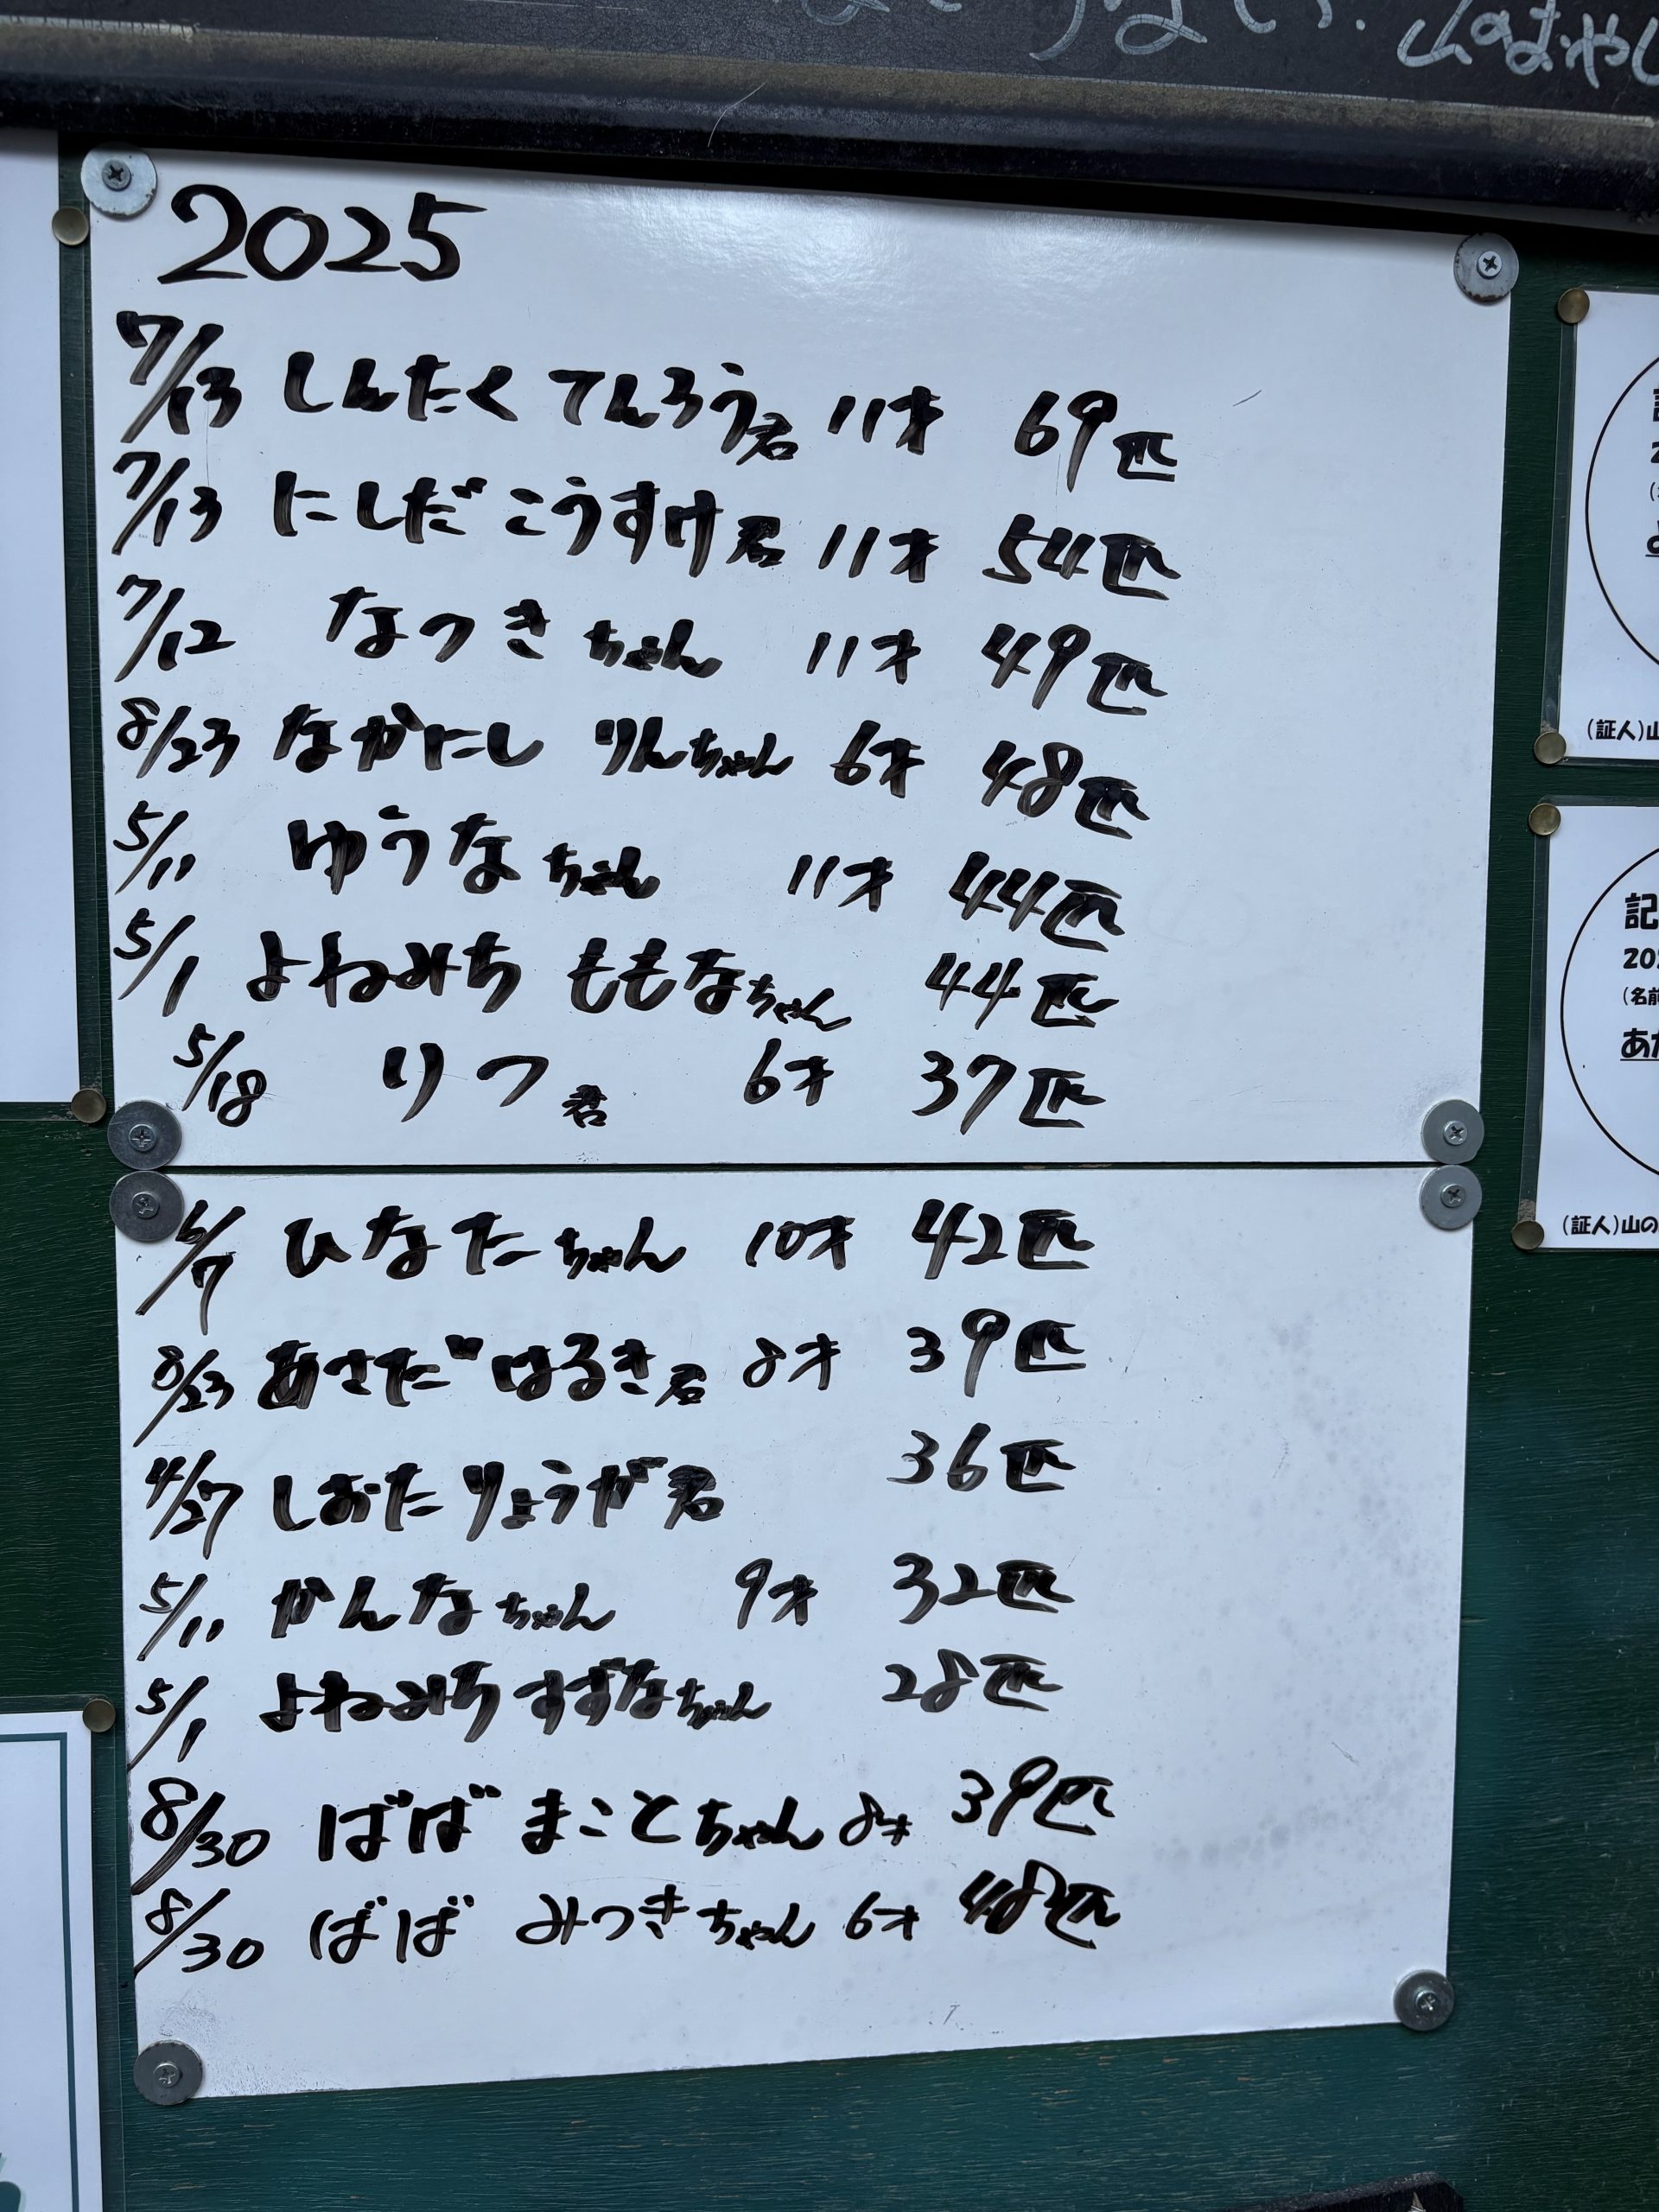 山のおやじ
2025
7/13 しんたく てんろう君 11才 69匹
7/13 にしだ こうすけ君 11才 54匹
7/12 なつきちゃん 11才 49匹
8/23 なかにし りんちゃん 6才 48匹
5/11 ゆうなちゃん 11才 44匹
5/1 よねみち ももなちゃん 44匹
5/18 りつ君 6才 37匹
6/7 ひなたちゃん 10才 42匹
8/23 あさだ はるき君 8才 39匹
4/27 しおた りょうが君 36匹
5/11 かんなちゃん 9才 32匹
5/1 よねみち すずなちゃん 28匹
8/30 ばば まことちゃん 8才 39匹
8/30 ばば みつきちゃん 6才 48匹
(証人)山
記
20
(名前
あか
(証人)山の